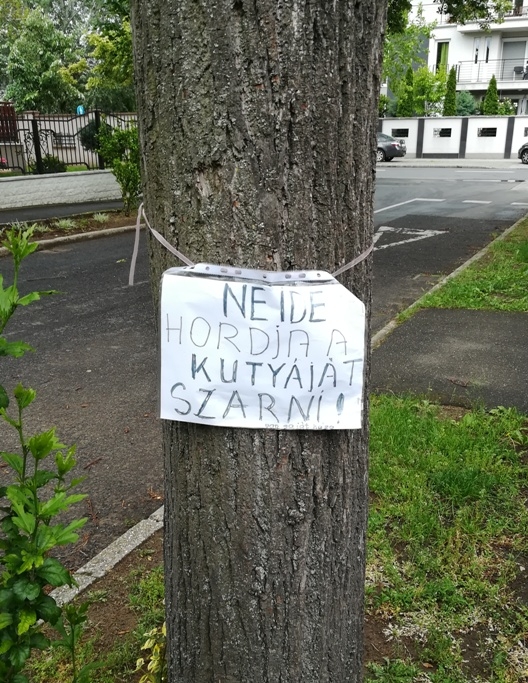 NE IDE
HORDJA A
KUTYÁJÁT
SZARNI!